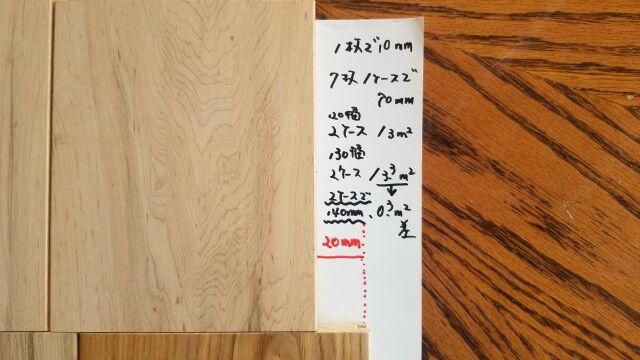 1枚で10mm
7枚1ケースで
70mm
120幅
2ケース 13m²
130幅
2ケース 13.3m²
2ケースで
140mm 0.3m²
差
20mm